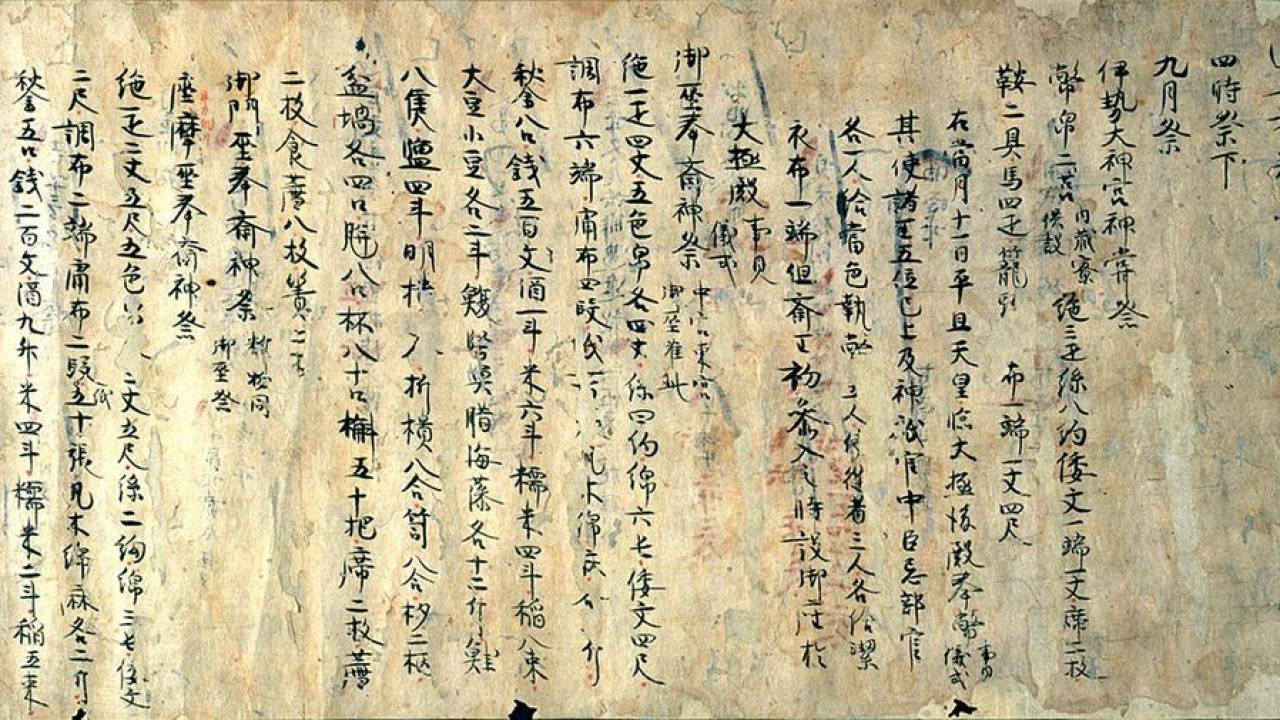 四時祭下
九月祭
伊勢大神宮神嘗祭
幣帛二笥 内蔵寮供設 絁三疋絲八約倭文一端一丈席二枚
鞍二具馬四疋籠 布一端一丈四尺
右當月十一日平旦天皇臨大極後殿奉幣 儀式
其使諸王五位已上及神祇官中臣忌部官
各一人給當色執幣 三人 者三人各給潔
衣布一端但斎王初参入之時設御座於
大極殿 事見儀式
御巫奉斎神祭 中宮東宮御巫准此
絁一疋四丈五色帛各四丈絲四約綿六屯倭文四尺
調布六端庸布四段 凡木綿 斤
秋金八口錢五百文酒一斗米六斗糯米四斗稲八束
大豆小豆各二斗鰒堅魚腊海藻各十二斤雑
八隻塩四斗明櫃 折櫃八合筥八合杉二柄
盆堝各四口瓫八口杯八十口槲五十把席二枚薦
二枚食薦八枚簀二
御門巫奉斎神祭 同御巫祭
座摩巫奉斎神祭
絁一疋二丈五尺五色 二丈五尺絲二絇綿三屯倭文
二尺調布二端庸布二段 五十張凡木綿麻各二斤
秋金五口錢二百文酒九升米四斗糯米二斗稲五束